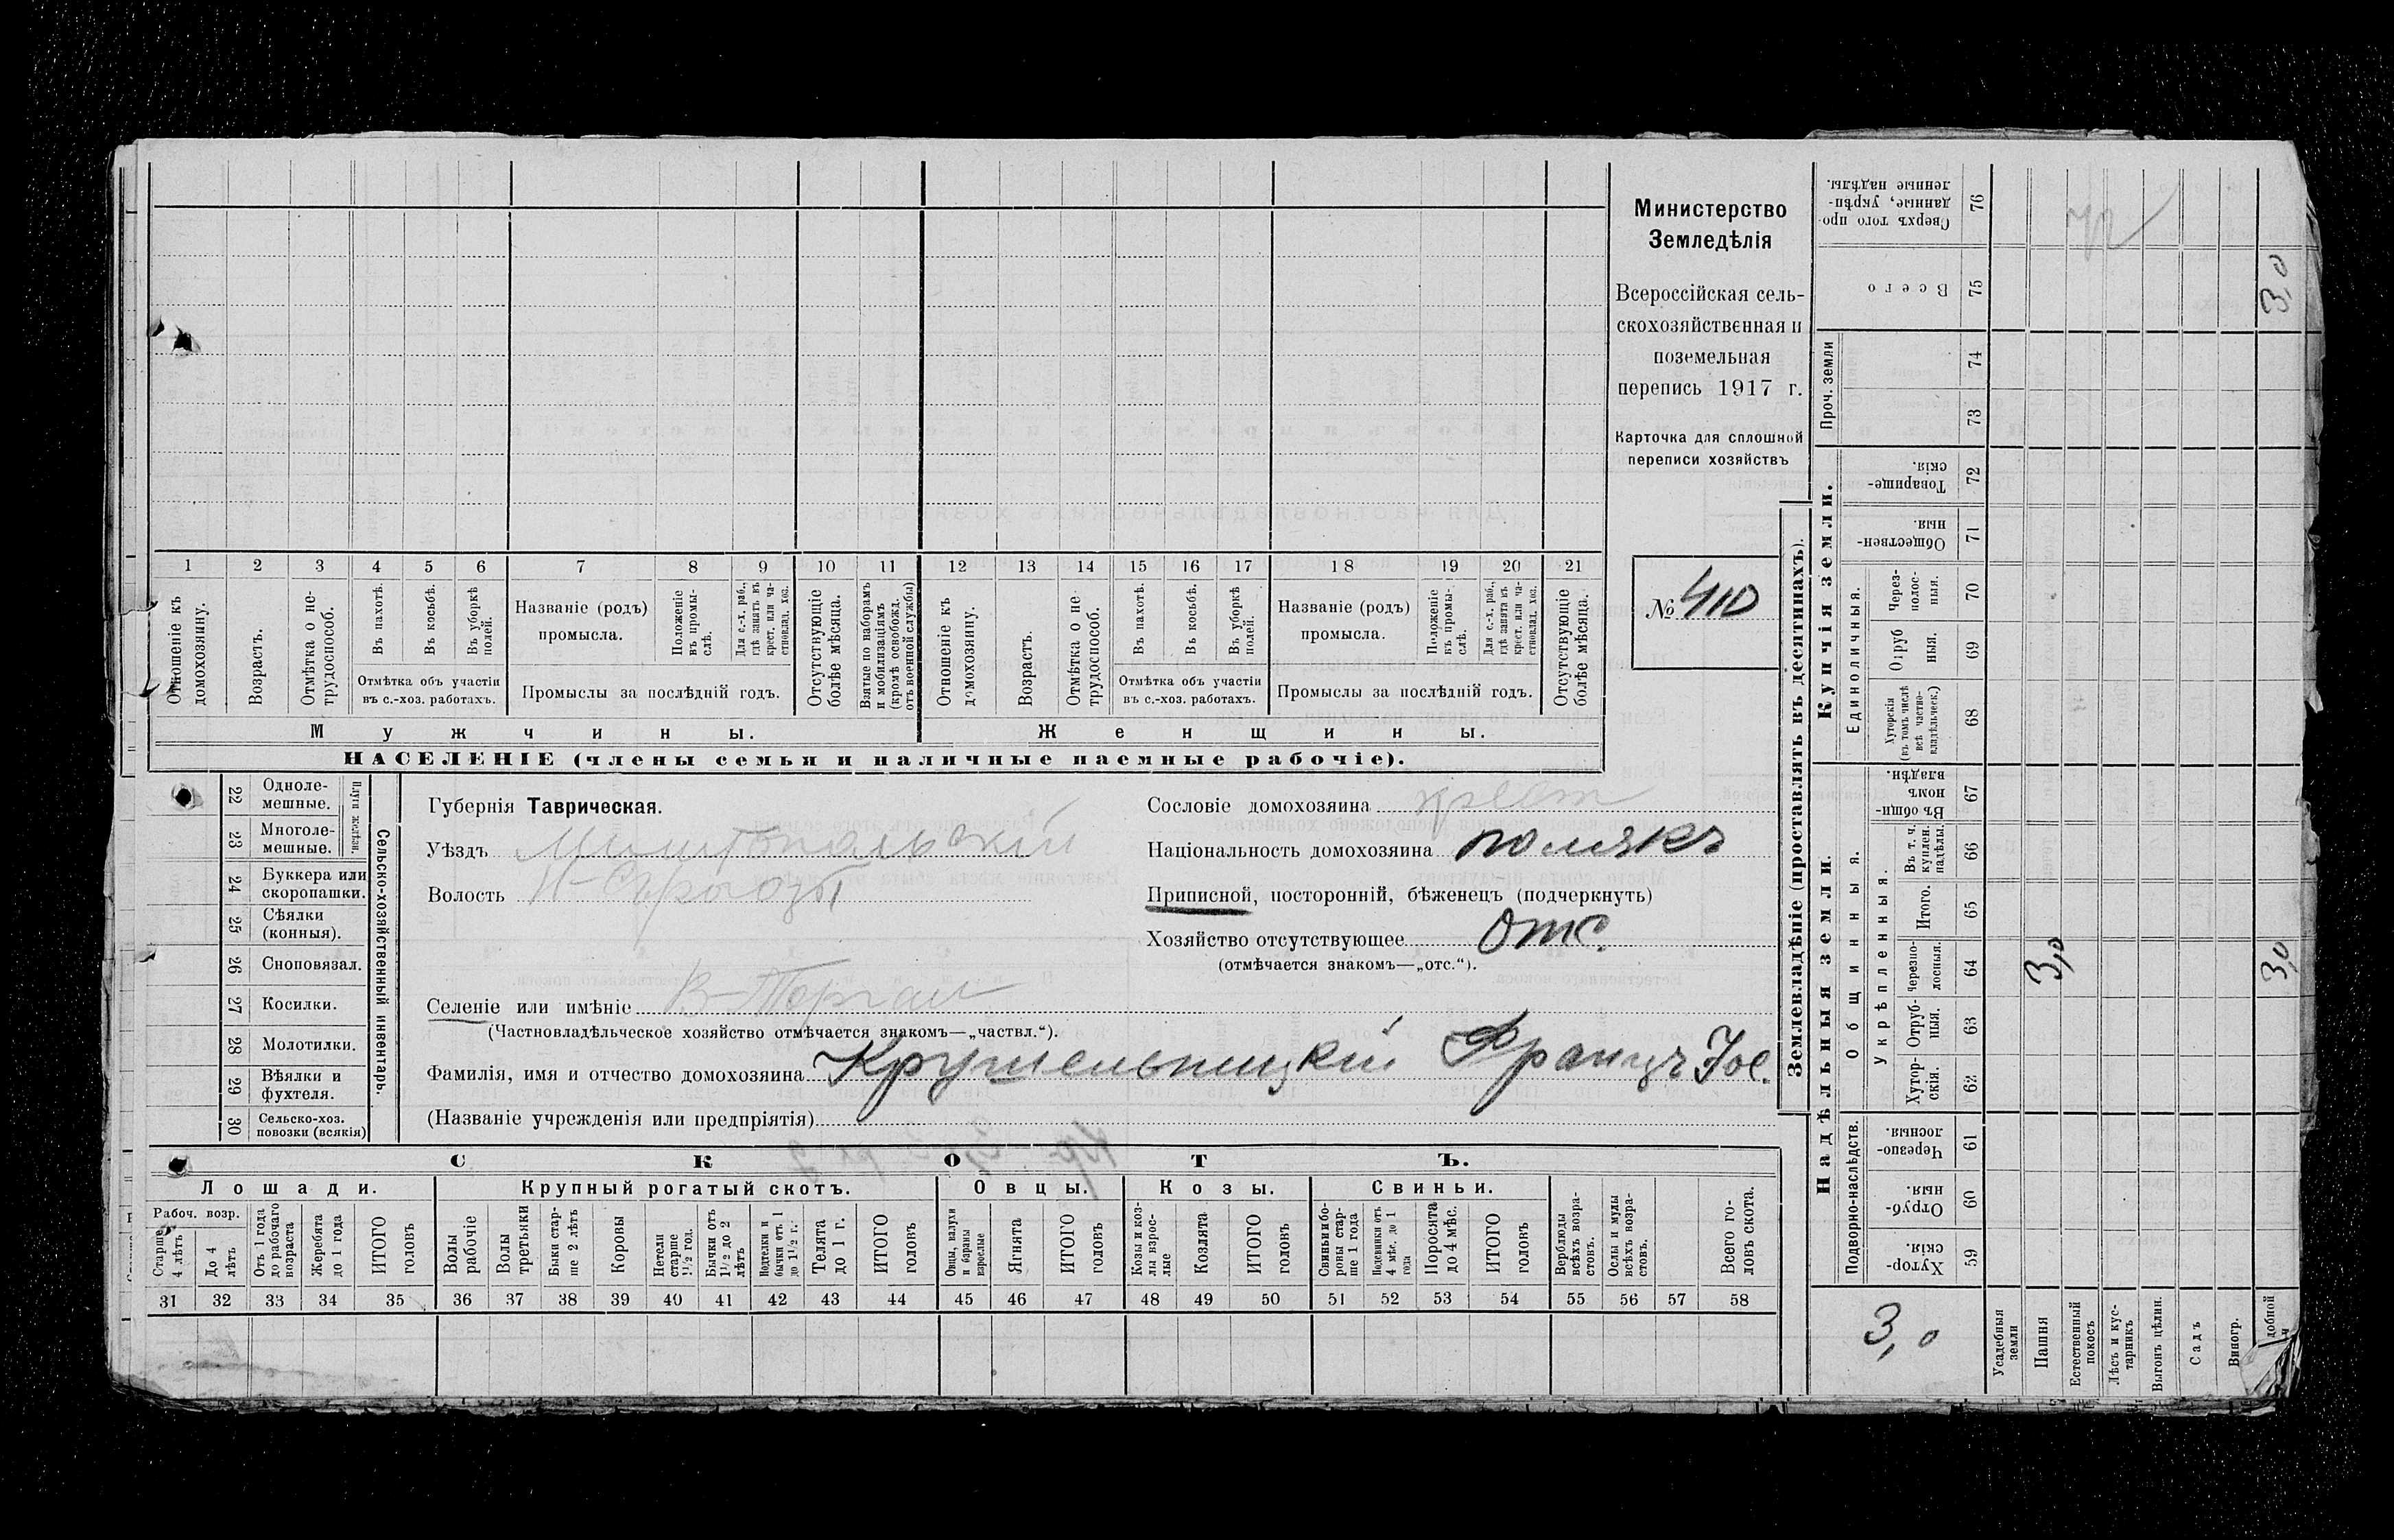 Министерство
Земледѣлія
Всероссійская сель-
скохозяйственная и
поземельная
перепись 1917 г.
Карточка для сплошной
переписи хозяйствъ
№ 410
1 2 3 4 5 6 7 8 9 10 11 12 13 14 15 16 17 18 19 20 21
Отношеніе къ домохозяину.
Возрастъ.
Отмѣтка о не-трудоспособ.
Въ пахотѣ.
Въ косьбѣ.
Въ уборкѣ полей.
Отмѣтка объ участіи
въ с.-хоз. работахъ.
Названіе (родъ)
промысла.
Положеніе въ промы-слѣ.
Для с.-х. раб., гдѣ занятъ въ крест. или ча-стновлад. хоз.
Промыслы за послѣдній годъ.
Отсутствующіе болѣе мѣсяца.
Взятые по наборамъ и мобилизаціямъ (кромѣ освобожд. отъ военной службы)
Отношеніе къ домохозяину.
Возрастъ.
Отмѣтка о не-трудоспособ.
Въ пахотѣ.
Въ косьбѣ.
Въ уборкѣ полей.
Отмѣтка объ участіи
въ с.-хоз. работахъ.
Названіе (родъ)
промысла.
Положеніе въ промы-слѣ.
Для с.-х. раб., гдѣ занята въ крест. или ча-стновлад. хоз.
Промыслы за послѣдній годъ.
Отсутствующіе болѣе мѣсяца.
Мужчины.
Женщины.
НАСЕЛЕНІЕ (члены семьи и наличные наемные рабочіе).
22 Одноле-мешные.
23 Многоле-мешные.
Плуги желѣзн.
24 Буккера или скоропашки.
25 Сѣялки (конныя).
26 Сноповязал.
27 Косилки.
28 Молотилки.
29 Вѣялки и фухтеля.
30 Сельско-хоз. повозки (всякія)
Сельско-хозяйственный инвентарь.
Губернія Таврическая.
Уѣздъ Мелитопальскій
Волость Н-Сѣрогозы
Селеніе или имѣніе В-Торгаи
(Частновладѣльческое хозяйство отмѣчается знакомъ—„частвл.“).
Фамилія, имя и отчество домохозяина Крушельницкій Францъ Іос.
(Названіе учрежденія или предпріятія)
Сословіе домохозяина крест
Національность домохозяина полякъ
Приписной, посторонній, бѣженецъ (подчеркнуть)
Хозяйство отсутствующее Отс.
(отмѣчается знакомъ—„отс.“).
СКОТЪ.
Лошади.
Крупный рогатый скотъ.
Овцы.
Козы.
Свиньи.
Рабоч. возр.
Старше 4 лѣтъ
До 4 лѣтъ
Отъ 1 года до рабочаго возраста
Жеребята до 1 года
ИТОГО головъ
Волы рабочіе
Волы третьяки
Быки стар-ше 2 лѣтъ
Коровы
Нетели старше 1½ год.
Бычки отъ 1½ до 2 лѣтъ
Неделки и бычки отъ 1 до 1½ г.
Телята до 1 г.
ИТОГО головъ
Овцы, валухи и бараны взрослые
Ягнята
ИТОГО головъ
Козы и коз-лы взрос-лые
Козлята
ИТОГО головъ
Свиньи и бо-ровы стар-ше 1 года
Подсвинки отъ 4 мѣс. до 1 года
Поросята до 4 мѣс.
ИТОГО головъ
Верблюды всѣхъ возра-стовъ.
Ослы и мулы всѣхъ возра-стовъ.
Всего го-ловъ скота.
31 32 33 34 35 36 37 38 39 40 41 42 43 44 45 46 47 48 49 50 51 52 53 54 55 56 57 58
Землевладѣніе (проставлять въ десятинахъ).
Купчія земли.
Надѣльныя земли.
Сверхъ того про-данные, укрѣп-ленные надѣлы. 76
Всего 75 3,0
Проч. земли
74
73
Товарище-скія. 72
Обществен-ныя. 71
Единоличныя.
Через-полос-ныя. 70
Отруб ныя. 69
Хуторскія (въ томъ числѣ всѣ частно-владѣльческ.) 68
Общинныя.
Въ общи-номъ владѣн. 67
Укрѣпленныя.
Въ т. ч. куплен. надѣлы. 66
Итого. 65
Черезпо-лосныя. 64 3,0 3,0
Отруб-ныя. 63
Хутор-скія. 62
Подворно-наслѣдств.
Черезпо-лосныя 61
Отруб-ныя. 60
Хутор-скія 59
3,0
Усадебныя земли
Пашня
Естественный покосъ
Лѣсъ и кус-тарникъ
Выгонъ цѣлин.
Садъ
Виногр.
добной